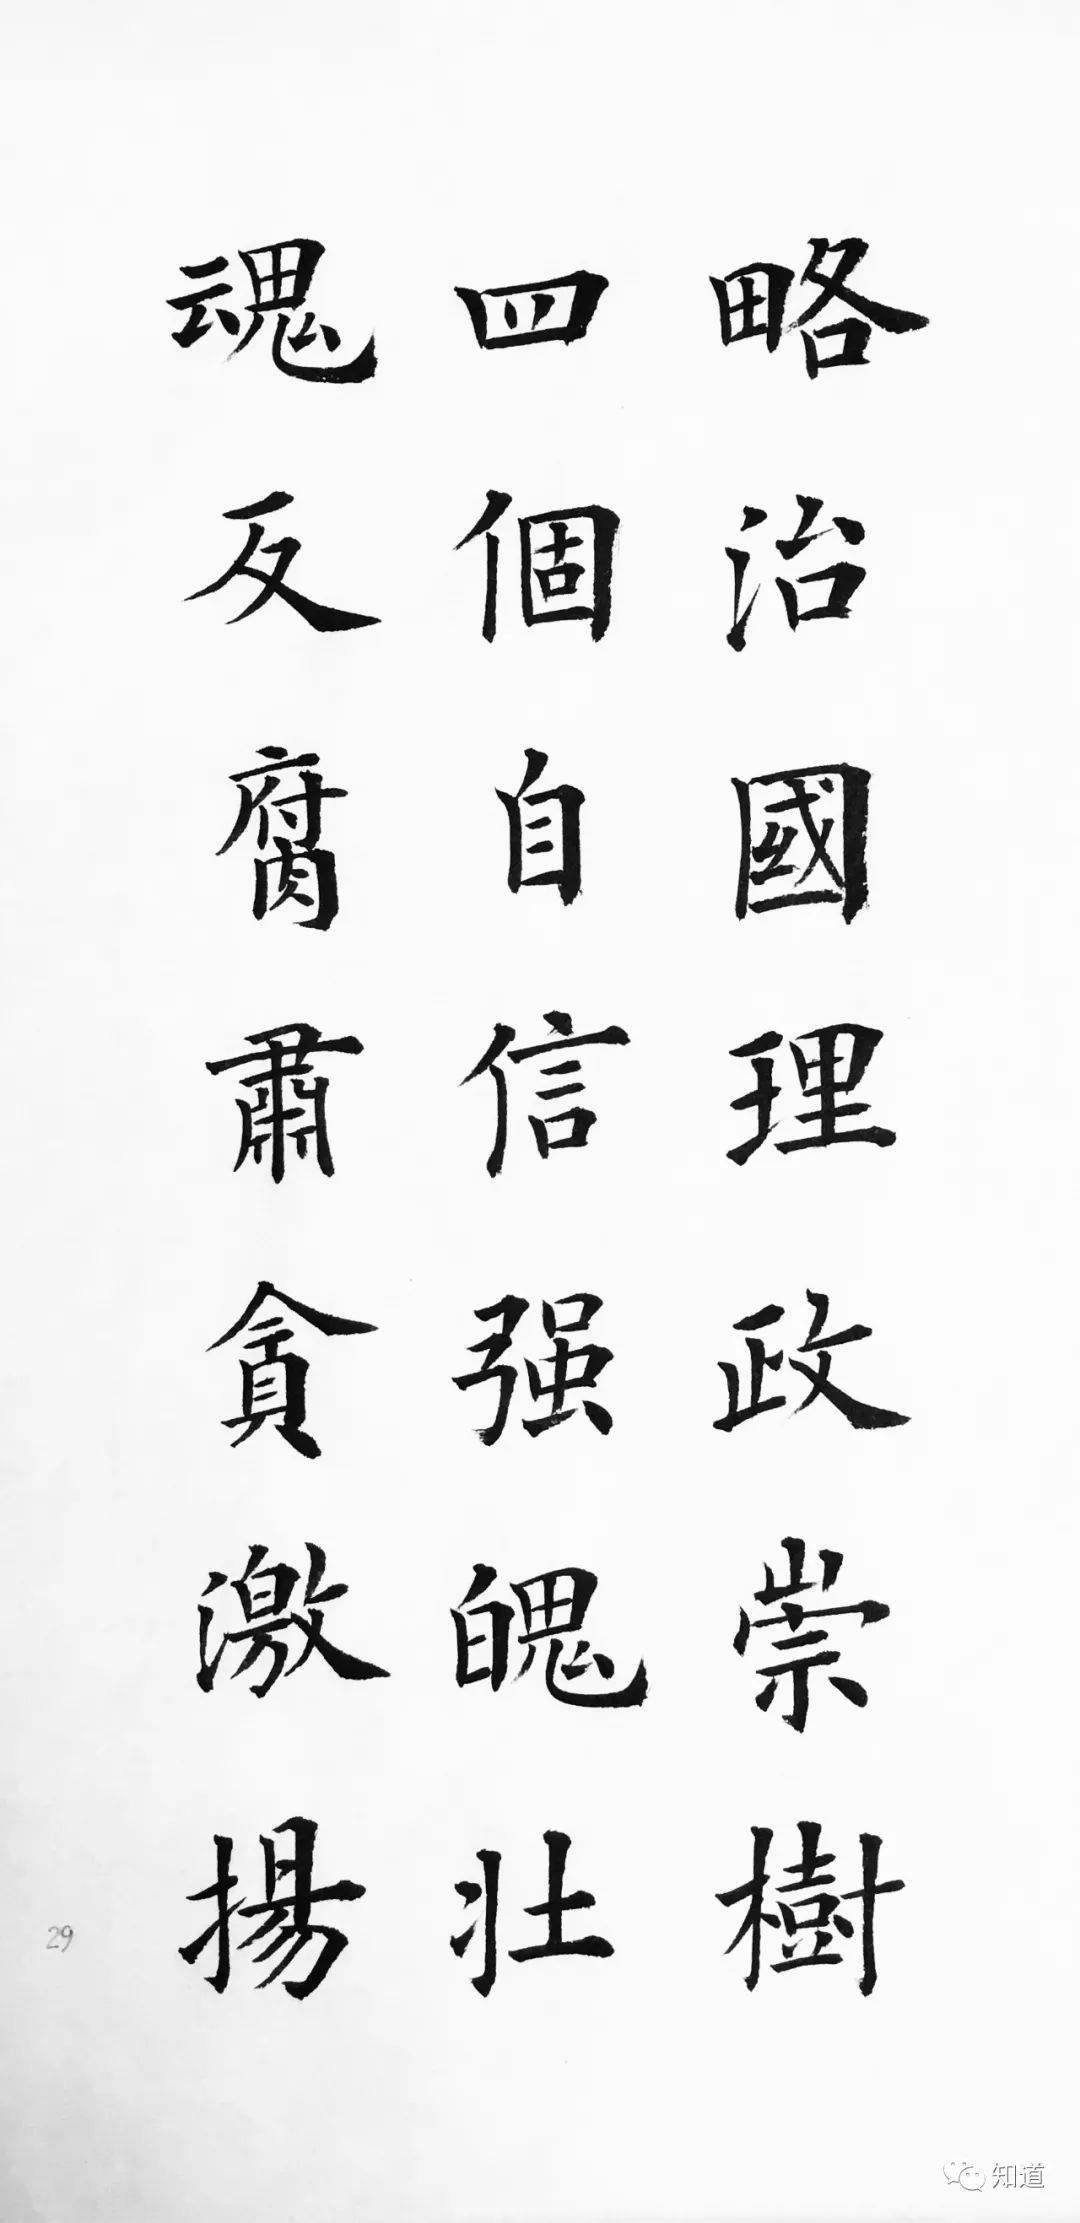 略治國理政崇樹
四個自信强魄壮
魂反腐肅貪激揚
29
知道